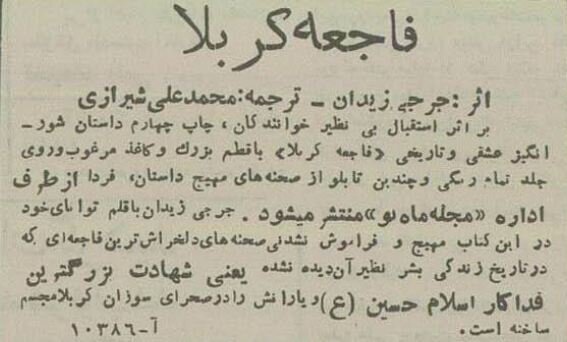 فاجعه کربلا
اثر: جرجی زیدان ـ ترجمه: محمدعلی شیرازی
بر اثر استقبال بی نظیر خوانندگان، چاپ چهارم داستان شور ـ
انگیز عشقی و تاریخی «فاجعه کربلا» با قطع بزرگ و کاغذ مرغوب و روی
جلد تمام رنگی و چندین تابلو از صحنه های مهیج داستان، فردا از طرف
اداره «مجله ماه نو» منتشر میشود. جرجی زیدان با قلم توانای خود
در این کتاب مهیج و فراموش نشدنی صحنه های دلخراش ترین فاجعه ای که
در تاریخ زندگی بشر نظیر آن دیده نشده یعنی شهادت بزرگترین
فداکار اسلام حسین (ع) و یارانش را در صحرای سوزان کربلا مجسم
ساخته است. آ-۱۰۳۸۶